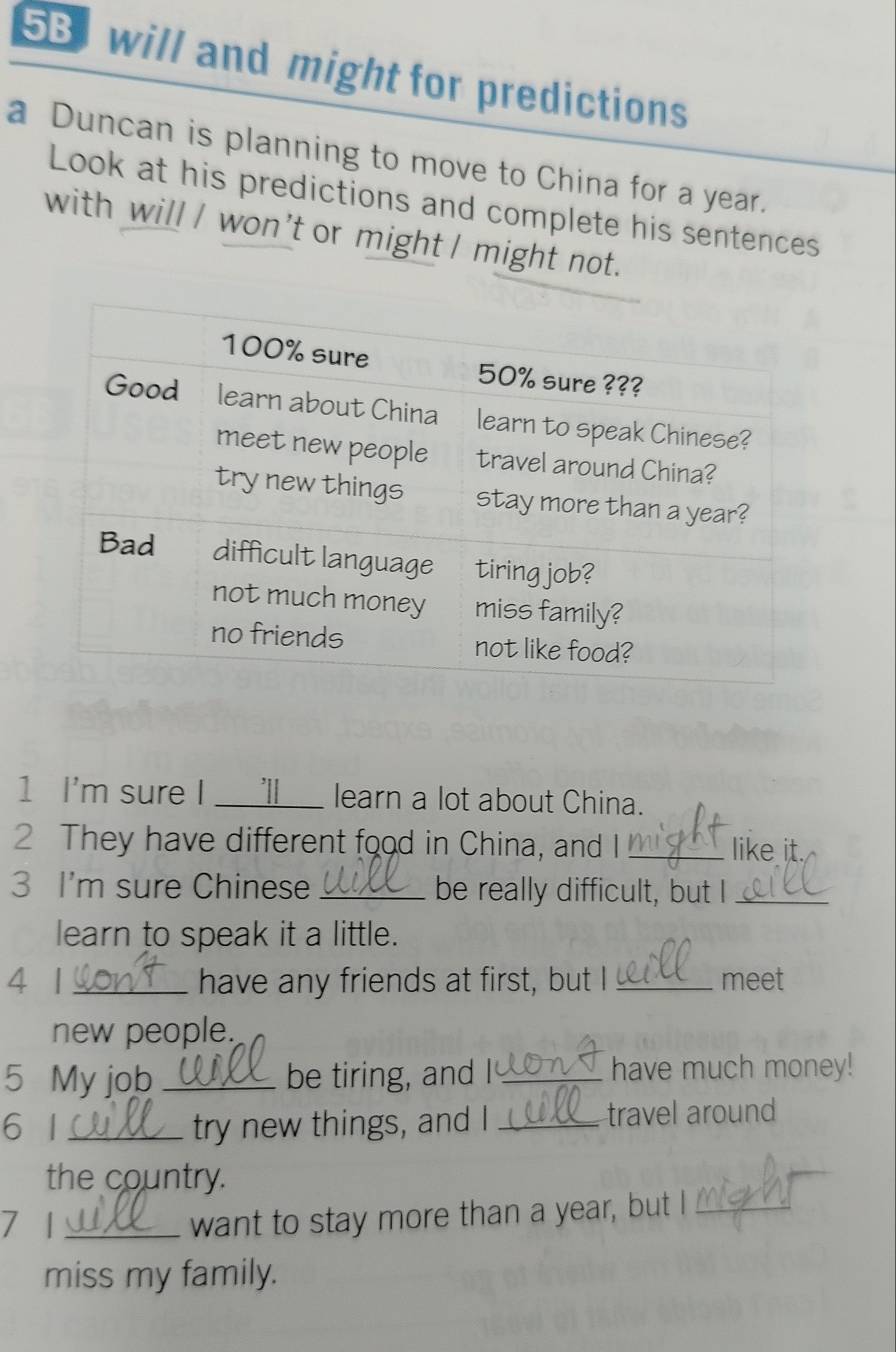 5B will and might for predictions
a Duncan is planning to move to China for a year.
Look at his predictions and complete his sentences
with will / won't or might / might not.
100% sure 50% sure ???
Good learn about China learn to speak Chinese?
meet new people travel around China?
try new things stay more than a year?
Bad difficult language tiring job?
not much money miss family?
no friends not like food?
1 I'm sure I 'll learn a lot about China.
2 They have different food in China, and I might like it.
3 I'm sure Chinese will be really difficult, but I will
learn to speak it a little.
4 I won't have any friends at first, but I will meet
new people.
5 My job will be tiring, and I won't have much money!
6 I will try new things, and I will travel around
the country.
7 I will want to stay more than a year, but I might
miss my family.